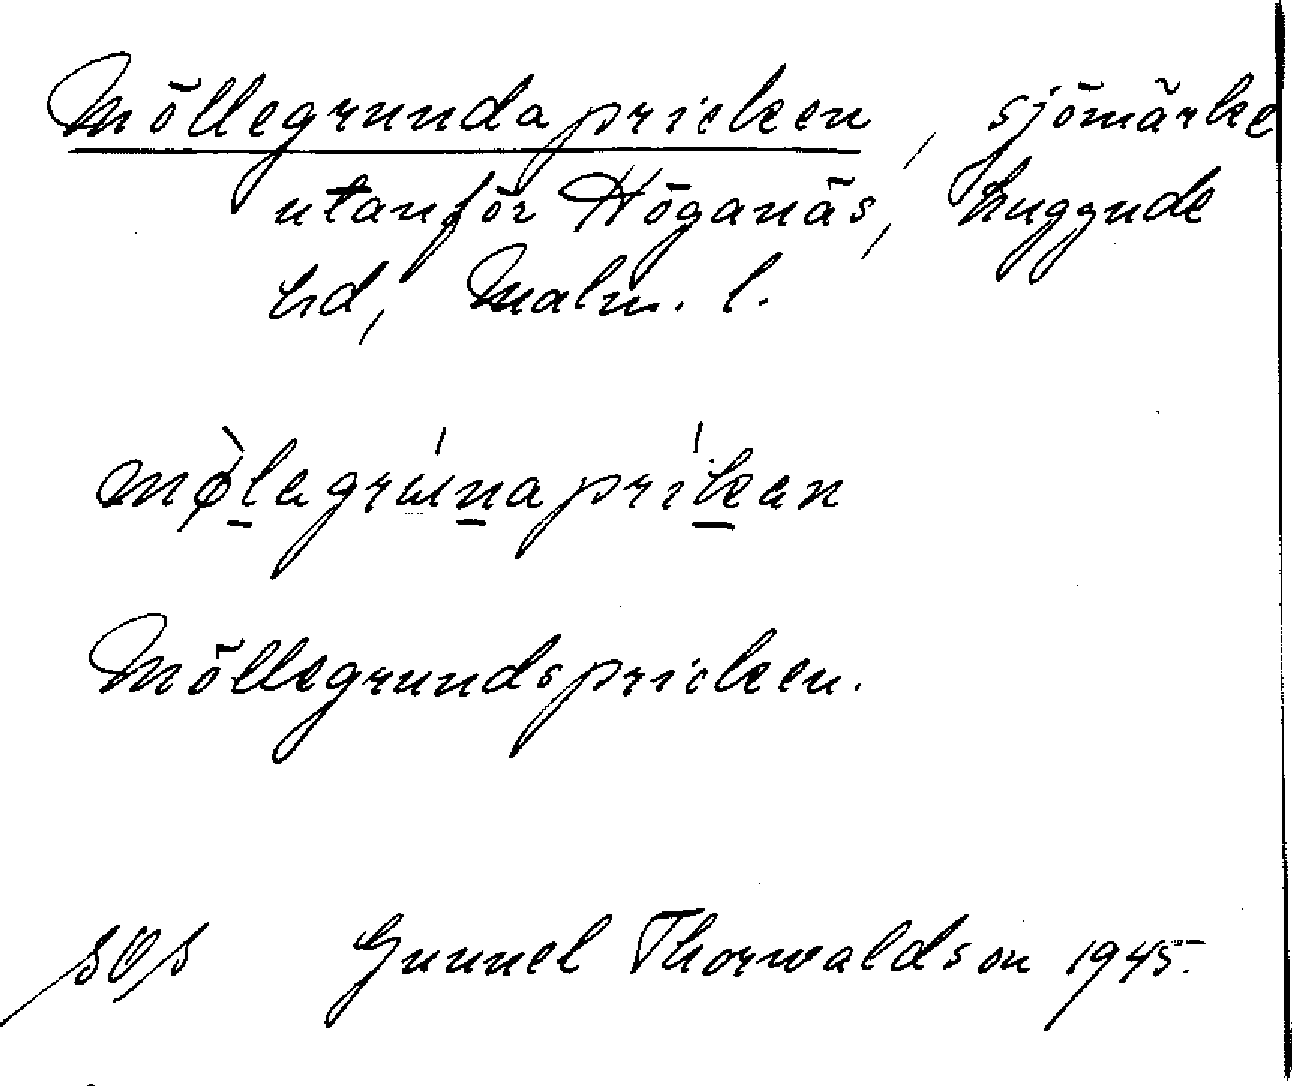 Möllegrundapricken, sjömärke
utanför Höganäs, Luggude
hd, Malm. l.
mø̀legrúnapríken
Möllegrundspricken.
Gunnel Thorwaldson 1945.